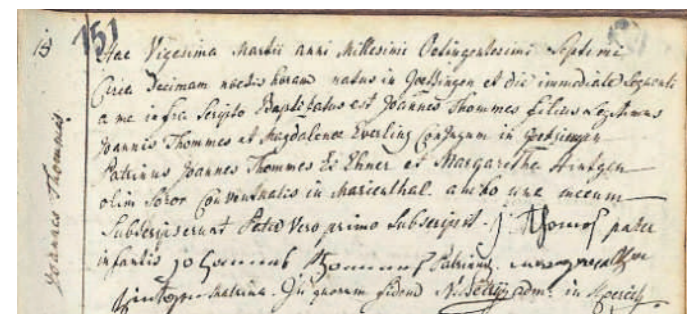 15
151
Hac Vigesima Martii anni Millesimi Octingentesimi Septimi
Circa Decimam noctis horam natus in Goetzingen et die immediate sequenti
a me infra scripto Baptisatus est Joannes Thommes filius Legitimus
Joannis Thommes et Magdalenae Everling Conjugum in Goetzingen
Patrinus Joannes Thommes Ex Ehner et Margaretha Hintgen
olim Soror Conventualis in Marienthal. ambo una mecum
Subscripserunt Pater vero primo Subscripsit. J Thomes pater
infantis Johannes Thommes Patrinus
matrina. In quorum fidem adm: in
Joannes Thommes